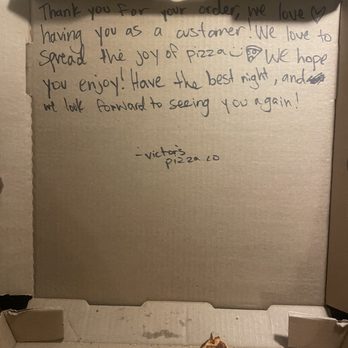 Thank you for your order, we love
having you as a customer! We love to
spread the joy of pizza We hope
you enjoy! Have the best night, and
we look forward to seeing you again!
-victor's
pizza co